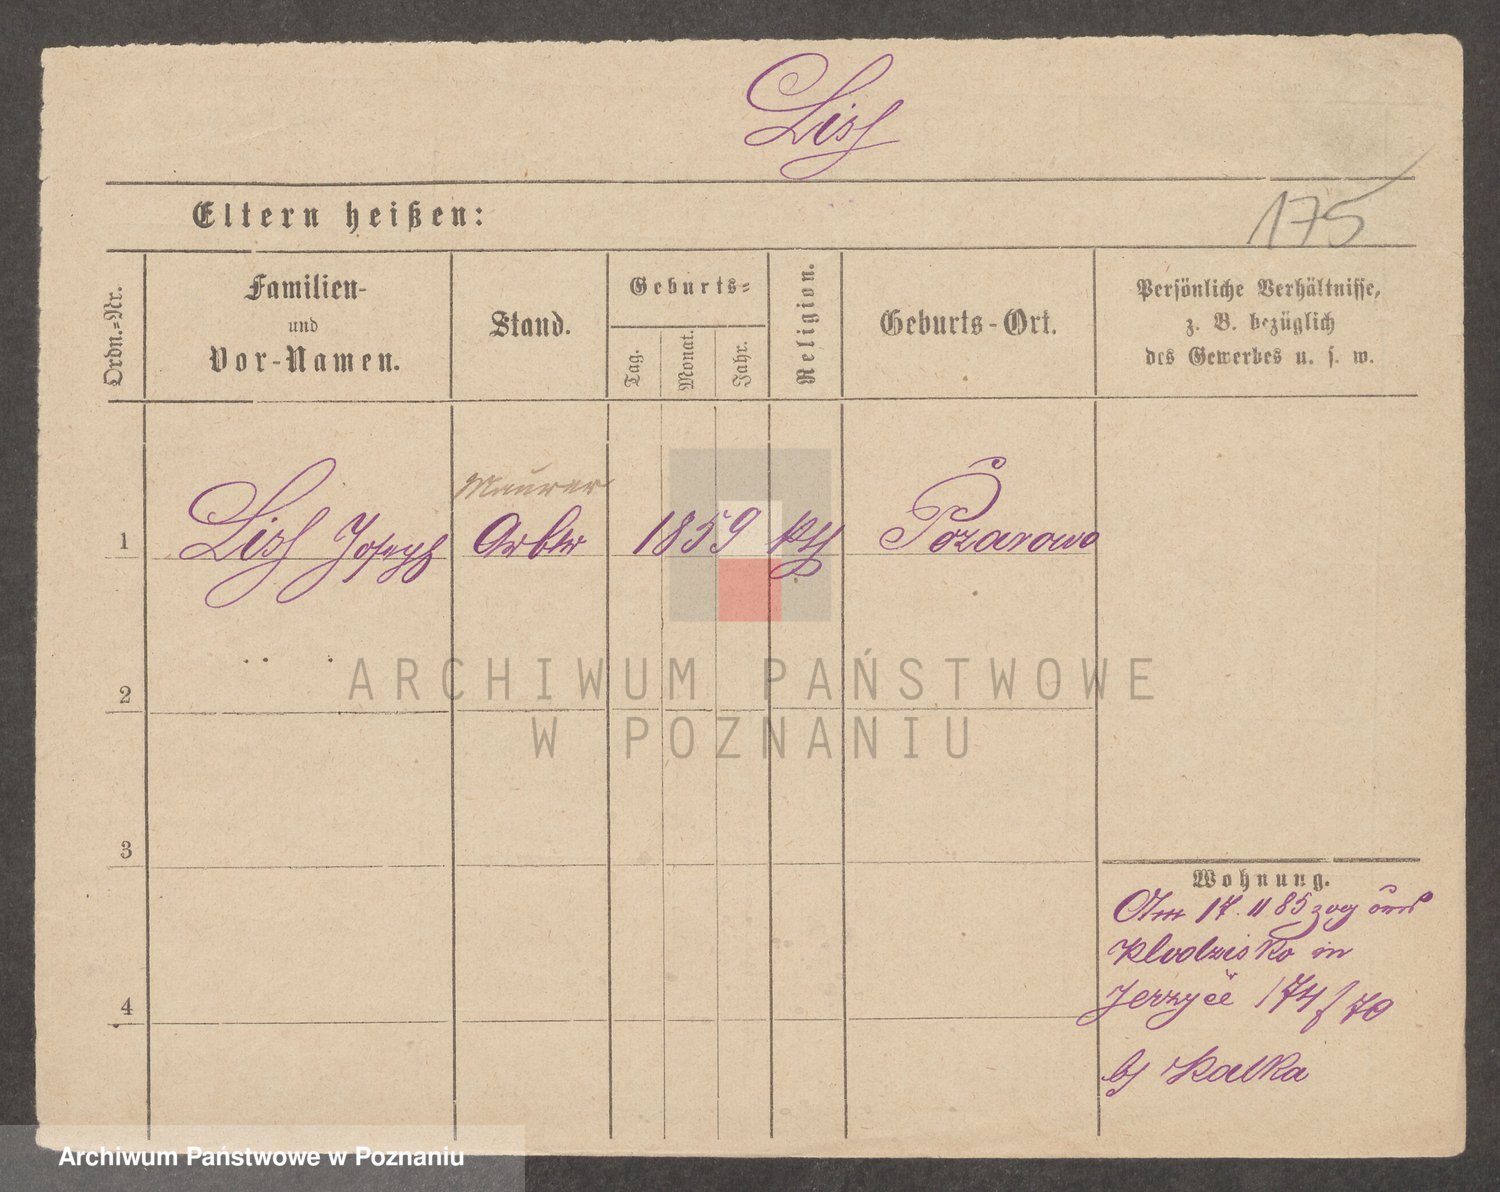 Lis
175
Eltern heißen:
Ordn.-Nr.
Familien-
und
Vor-Namen.
Stand.
Geburts-
Tag.
Monat.
Jahr.
Religion.
Geburts-Ort.
Persönliche Verhältnisse,
z. B. bezüglich
des Gewerbes u. s. w.
Maurer
1 Joseph Arbtr 1859 kth Pozarowo
2
3
4
Wohnung.
Am 17. 11 85 zog
Klodzisko in
174/70
b/ Kalka
ARCHIWUM PAŃSTWOWE
W POZNANIU
Archiwum Państwowe w Poznaniu